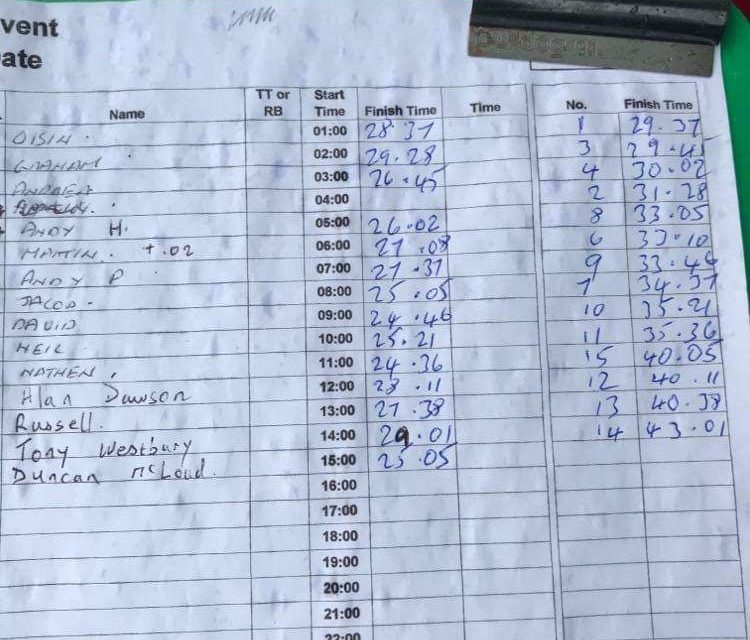 vent
ate
Name TT or RB Start Time Finish Time Time No. Finish Time
OISIN. 01:00 28.37 1 29.37
GRAHAM 02:00 29.28 3 29.45
ANDREA 03:00 26.45 4 30.02
04:00 2 31.28
ANDY H. 05:00 26.02 8 33.05
MARTIN. +.02 06:00 27.08 6 33.10
ANDY P 07:00 27.37 9 33.46
JACOB. 08:00 25.05 7 34.37
DAVID 09:00 24.46 10 35.21
NEIL 10:00 25.21 11 35.36
NATHEN. 11:00 24.36 15 40.05
Alan Dawson 12:00 28.11 12 40.11
Russell. 13:00 27.38 13 40.38
Tony Westbury 14:00 29.01 14 43.01
Duncan McLoud. 15:00 25.05
16:00
17:00
18:00
19:00
20:00
21:00
22:00